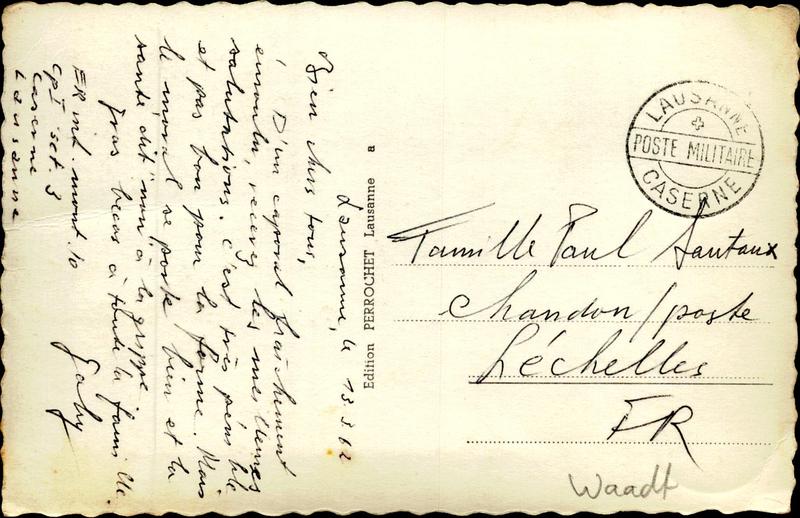 Lausanne, le 13.3.62
Bien chers tous,
D'un caporal fraîchement
enroulu, recevez les meilleures
salutations. C'est très pénible
et pas bon pour la forme. Mais
le moral se porte bien et la
santé dit "non" à la grippe.
Gros becos à toute la famille
Gaby
ER inf. mont. 10
cp I sct. 3
Caserne
Lausanne
Edition PERROCHET Lausanne a
LAUSANNE
POSTE MILITAIRE
CASERNE
Famille Paul Gautaux
Chandon/poste
Léchelles
FR
Waadt